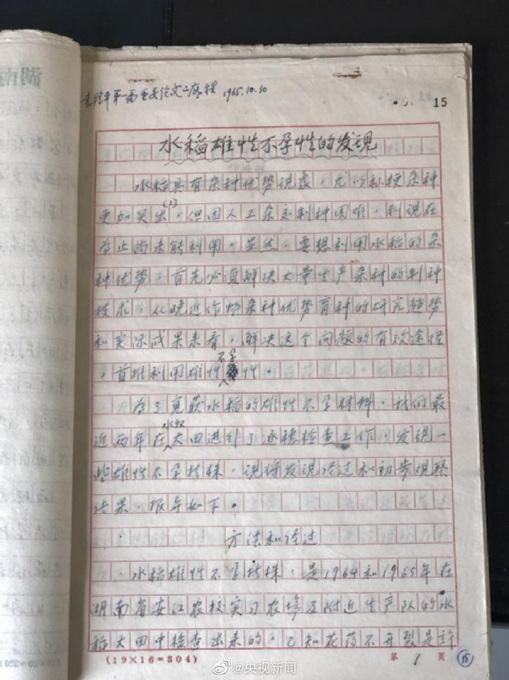 湖南
袁隆平第一篇重要论文二底稿 1965.10.30
15
水稻雄性不孕性的发现
水稻具有杂种优势现象，尤以籼粳杂种
更加突出(1)，但因人工杂交制种困难，到现在
为止尚未能利用。显然，要想利用水稻的杂
种优势，首先必须解决大量生产杂种的制种
技术，从晚近作物杂种优势育种的研究趋势
和实际成果来看，解决这个问题的有效途径
，首推利用雄性不孕性。
为了克获水稻的雄性不孕材料，我们最
近两年在水稻大田进行了逐穗检查工作，发现一
些雄性不孕植株，现将发现经过和初步观察
结果，报导如下。
方法和经过
水稻雄性不孕植株，是1964和1965年在
湖南省安江农校实习农场及附近生产队的水
稻大田中检查出来的。已知花药不开裂是许
(19×16=304)
第 1 页
15
@央视新闻